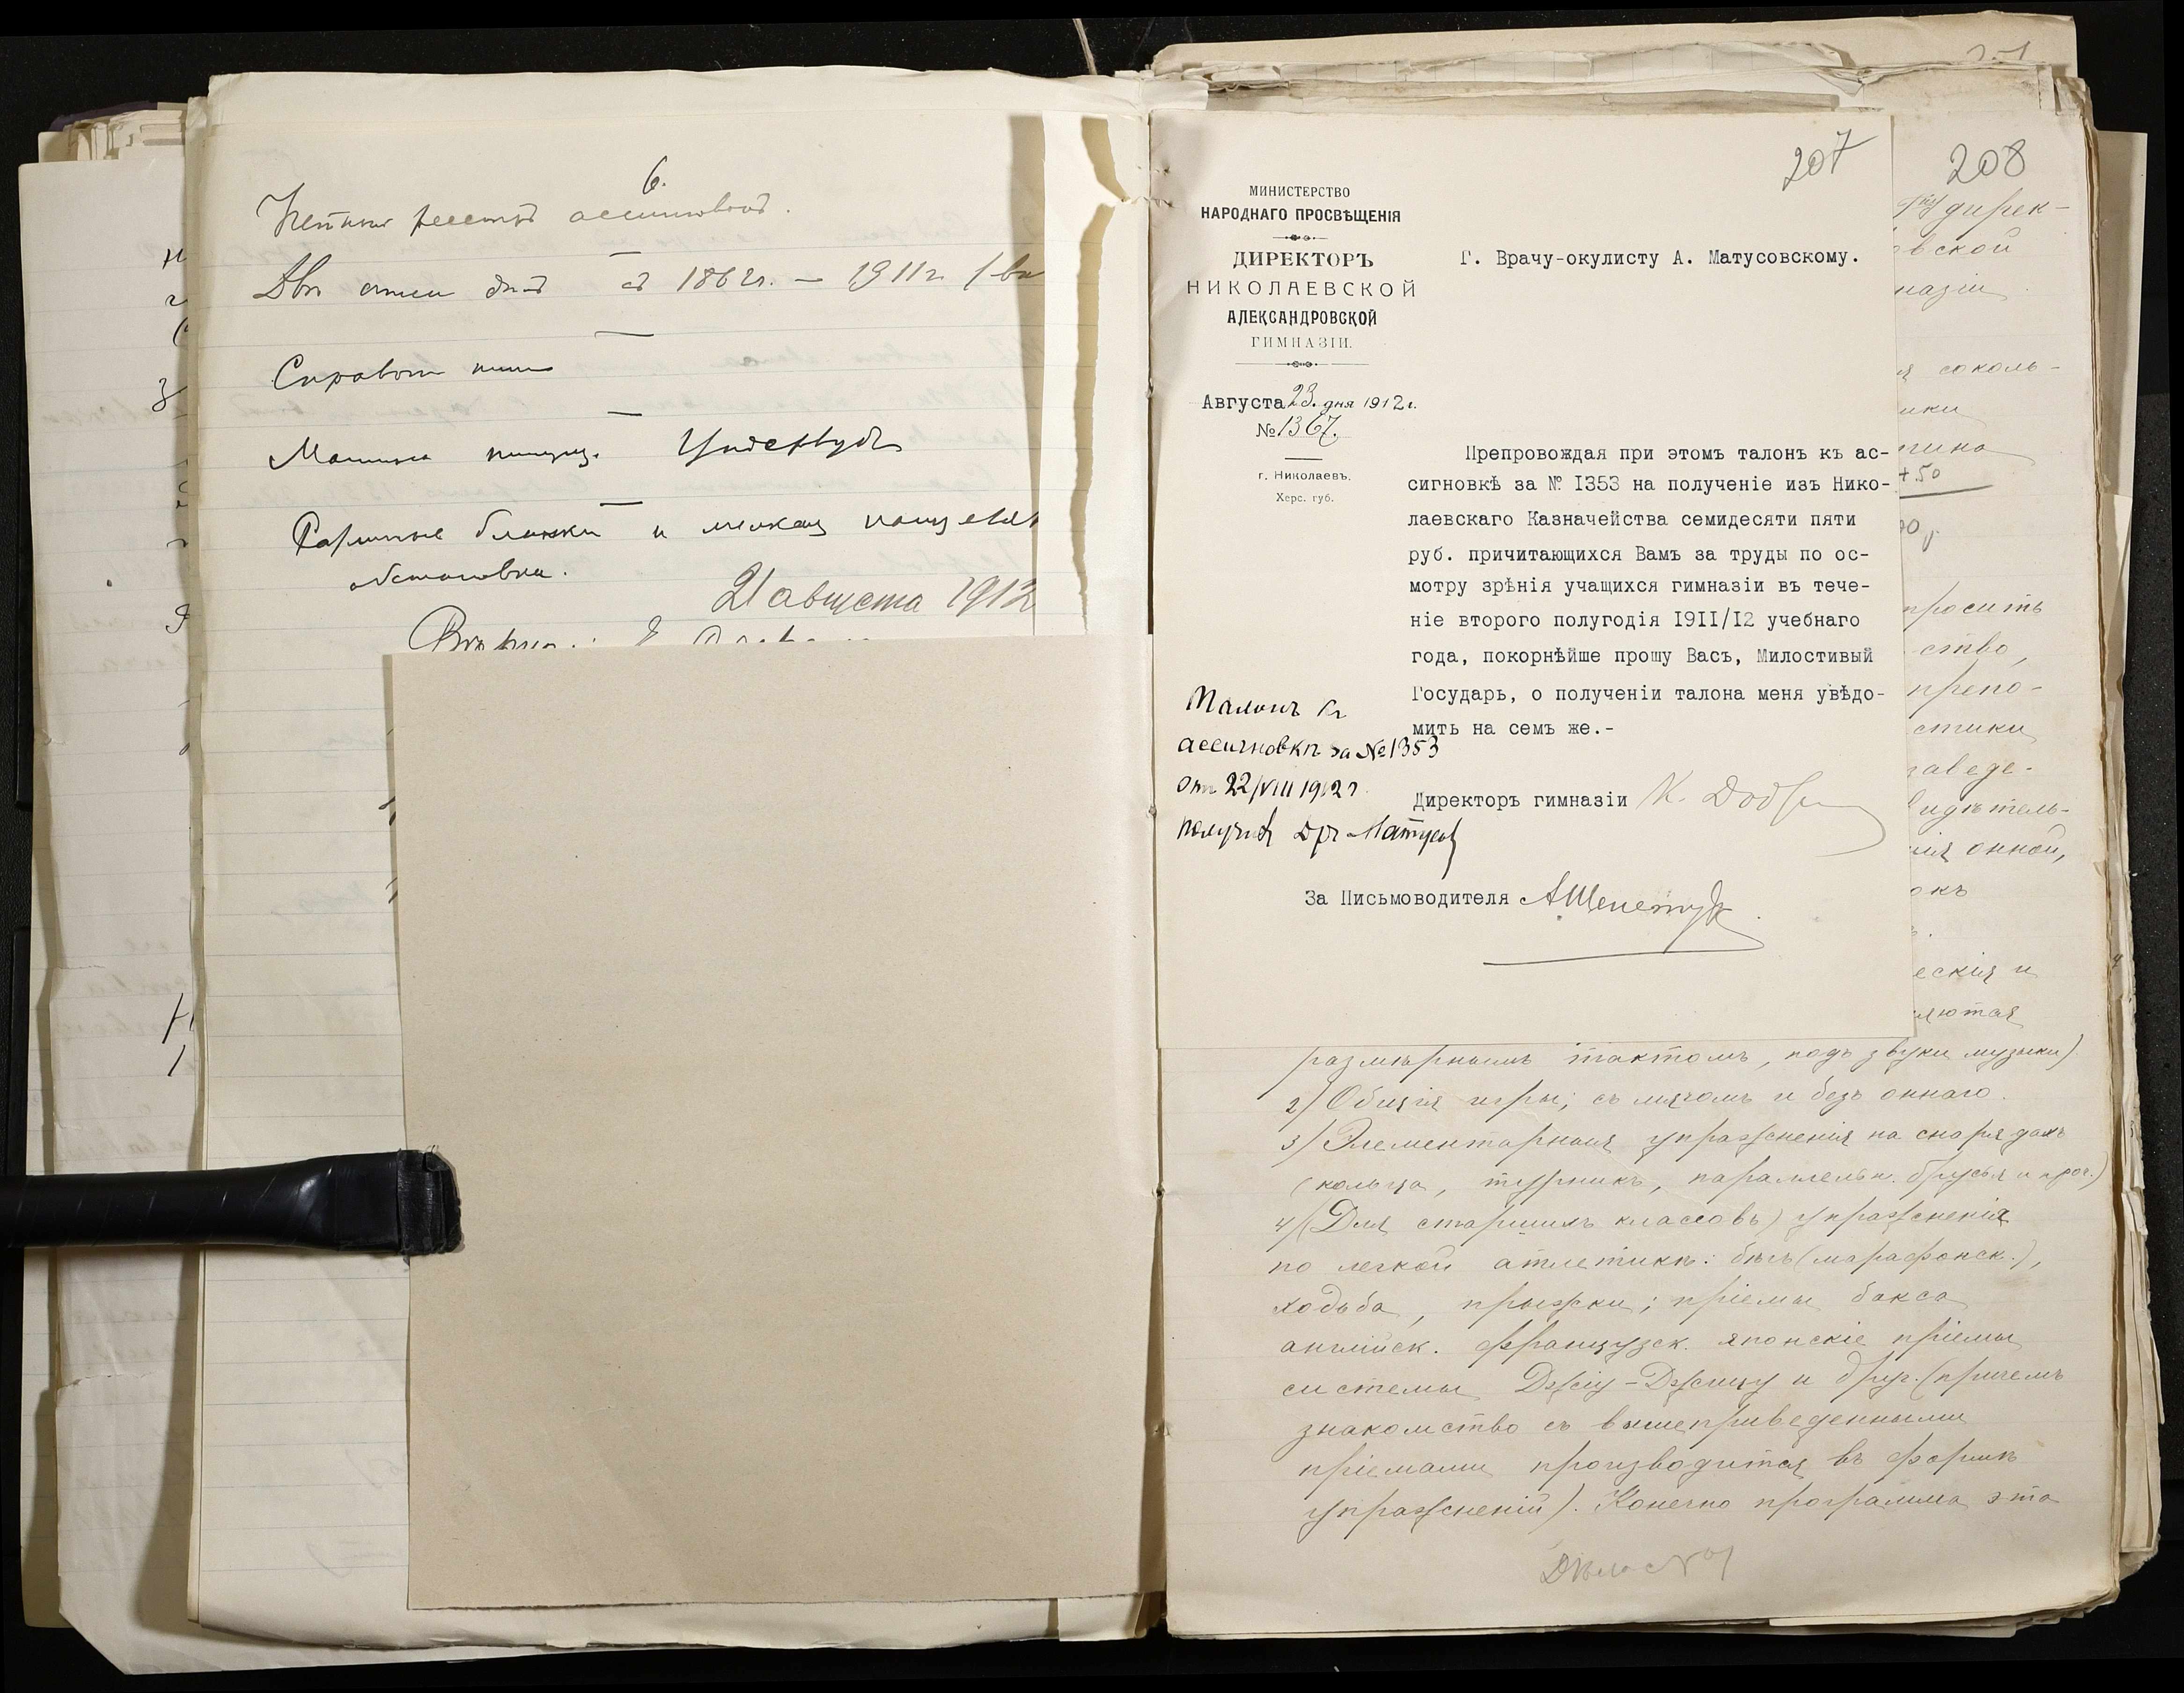 6.
реестръ ассигновокъ.
съ 1862г. — 1911г.
Справочн
Машина пишущ. Ундервудъ
бланки и мелкая канцеляр
обстановка.
21 августа 1912
207
МИНИСТЕРСТВО
НАРОДНАГО ПРОСВѢЩЕНІЯ
ДИРЕКТОРЪ
НИКОЛАЕВСКОЙ
АЛЕКСАНДРОВСКОЙ
ГИМНАЗІИ.
Августа 23. дня 1912 г.
№ 1367.
г. Николаевъ.
Херс. губ.
Г. Врачу-окулисту А. Матусовскому.
Препровождая при этомъ талонъ къ ас-
сигновкѣ за № I353 на полученіе изъ Нико-
лаевскаго Казначейства семидесяти пяти
руб. причитающихся Вамъ за труды по ос-
мотру зрѣнія учащихся гимназіи въ тече-
ніе второго полугодія I9II/I2 учебнаго
года, покорнѣйше прошу Васъ, Милостивый
Государь, о полученіи талона меня увѣдо-
мить на семъ же.-
Талонъ къ
ассигновкѣ за № 1353
отъ 22/VIII 1912 г.
получилъ Д-ръ Матусов
Директоръ гимназіи К. Добр
За Письмоводителя АШелет
208
дирек-
овской
назіи
соколь-
ики
50
просить
ство,
препо-
стики
заведе-
идѣтель-
онной,
окъ
ескія и
яются
размѣрнымъ тактомъ, подъ звуки музыки)
2) Общія игры; съ мячомъ и безъ оннаго.
3) Элементарныя упражненія на снарядахъ
(кольца, турникъ, параллельн. брусья и проч.)
4) (Для старшихъ классовъ) упражненія
по легкой атлетикѣ: бѣгъ (марафонск.),
ходьба, прыжки; пріемы бокса
англійск. французск. японскіе пріемы
системы Джіу-Джицу и друг. (причемъ
знакомство съ вышеприведенными
пріемами производится въ формѣ
упражненій). Конечно программа эта
Дѣло №